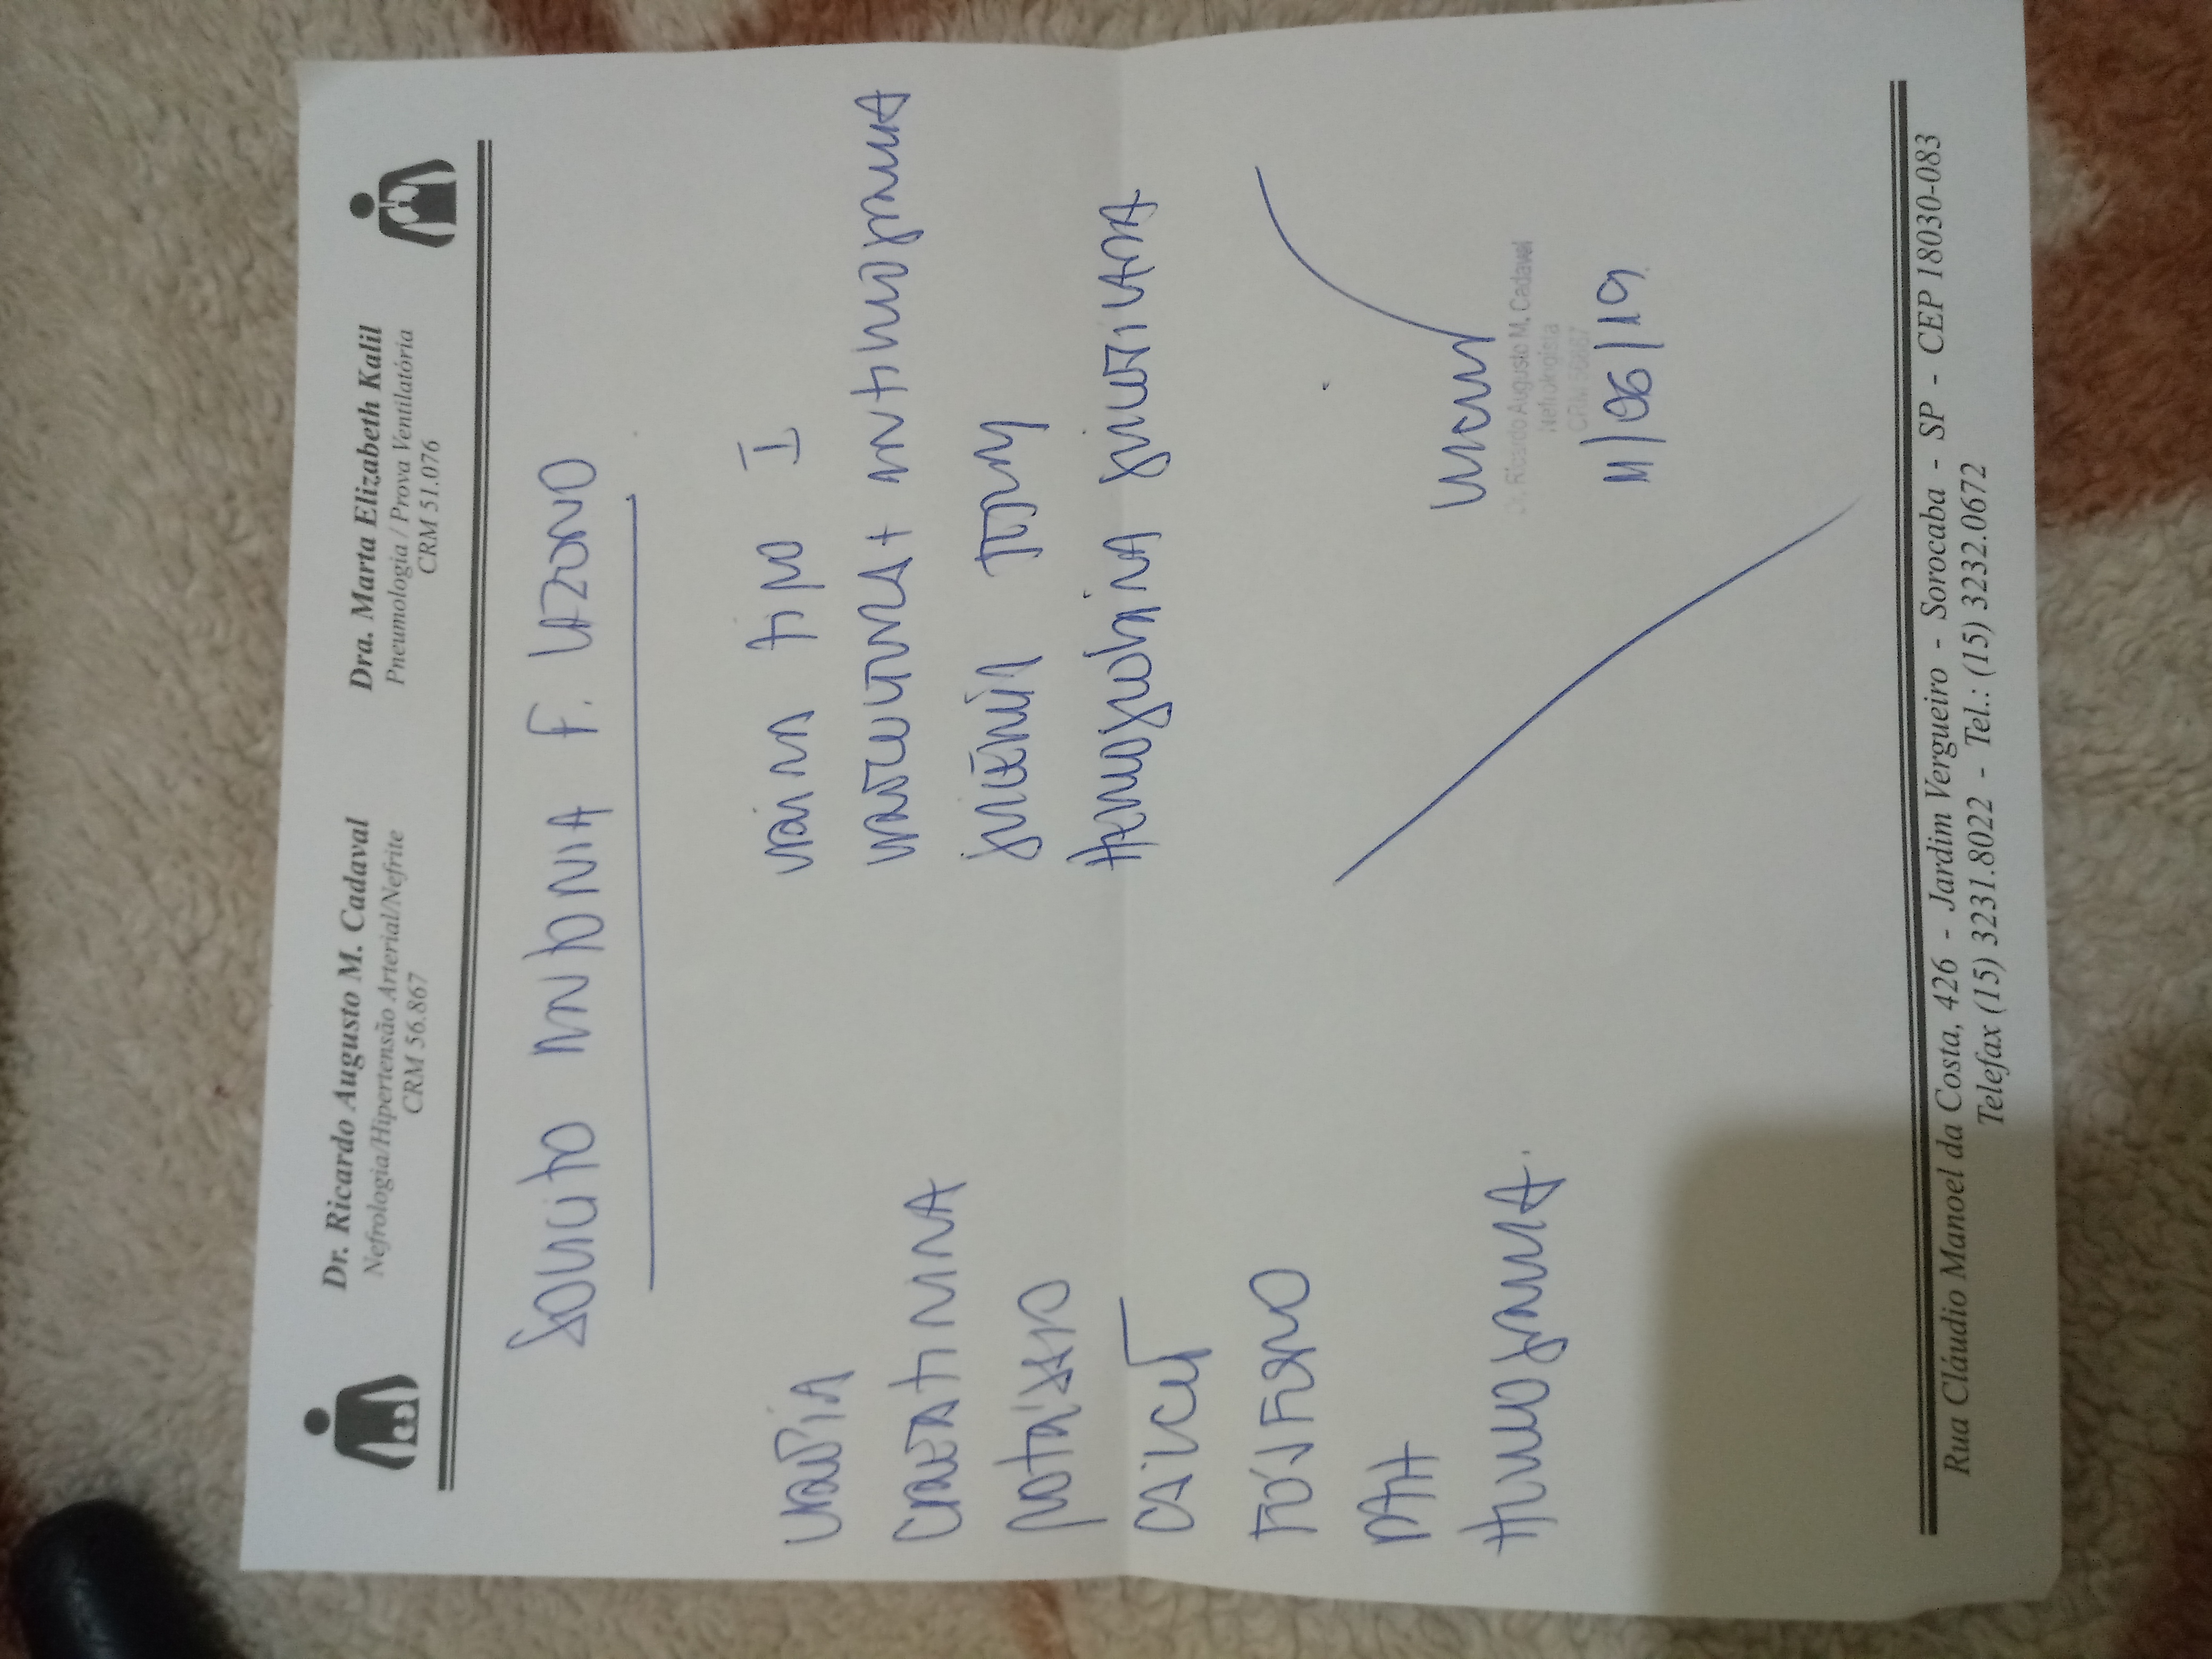 Dr. Ricardo Augusto M. Cadaval
Nefrologia/Hipertensão Arterial/Nefrite
CRM 56.867
Dra. Marta Elizabeth Kalil
Pneumologia / Prova Ventilatória
CRM 51.076
Solicito Antonia F.
Uréia
Creatinina
Potássio
Cálcio
Fósforo
PTH
Hemograma.
Urina tipo I
Urocultura + Antibiograma
Glicemia Jejum
Hemoglobina Glicosilada
Dr. Ricardo Augusto M. Cadaval
Nefrologista
CRM 56867
11/06/19
Rua Cláudio Manoel da Costa, 426 - Jardim Vergueiro - Sorocaba - SP - CEP 18030-083
Telefax (15) 3231.8022 - Tel.: (15) 3232.0672